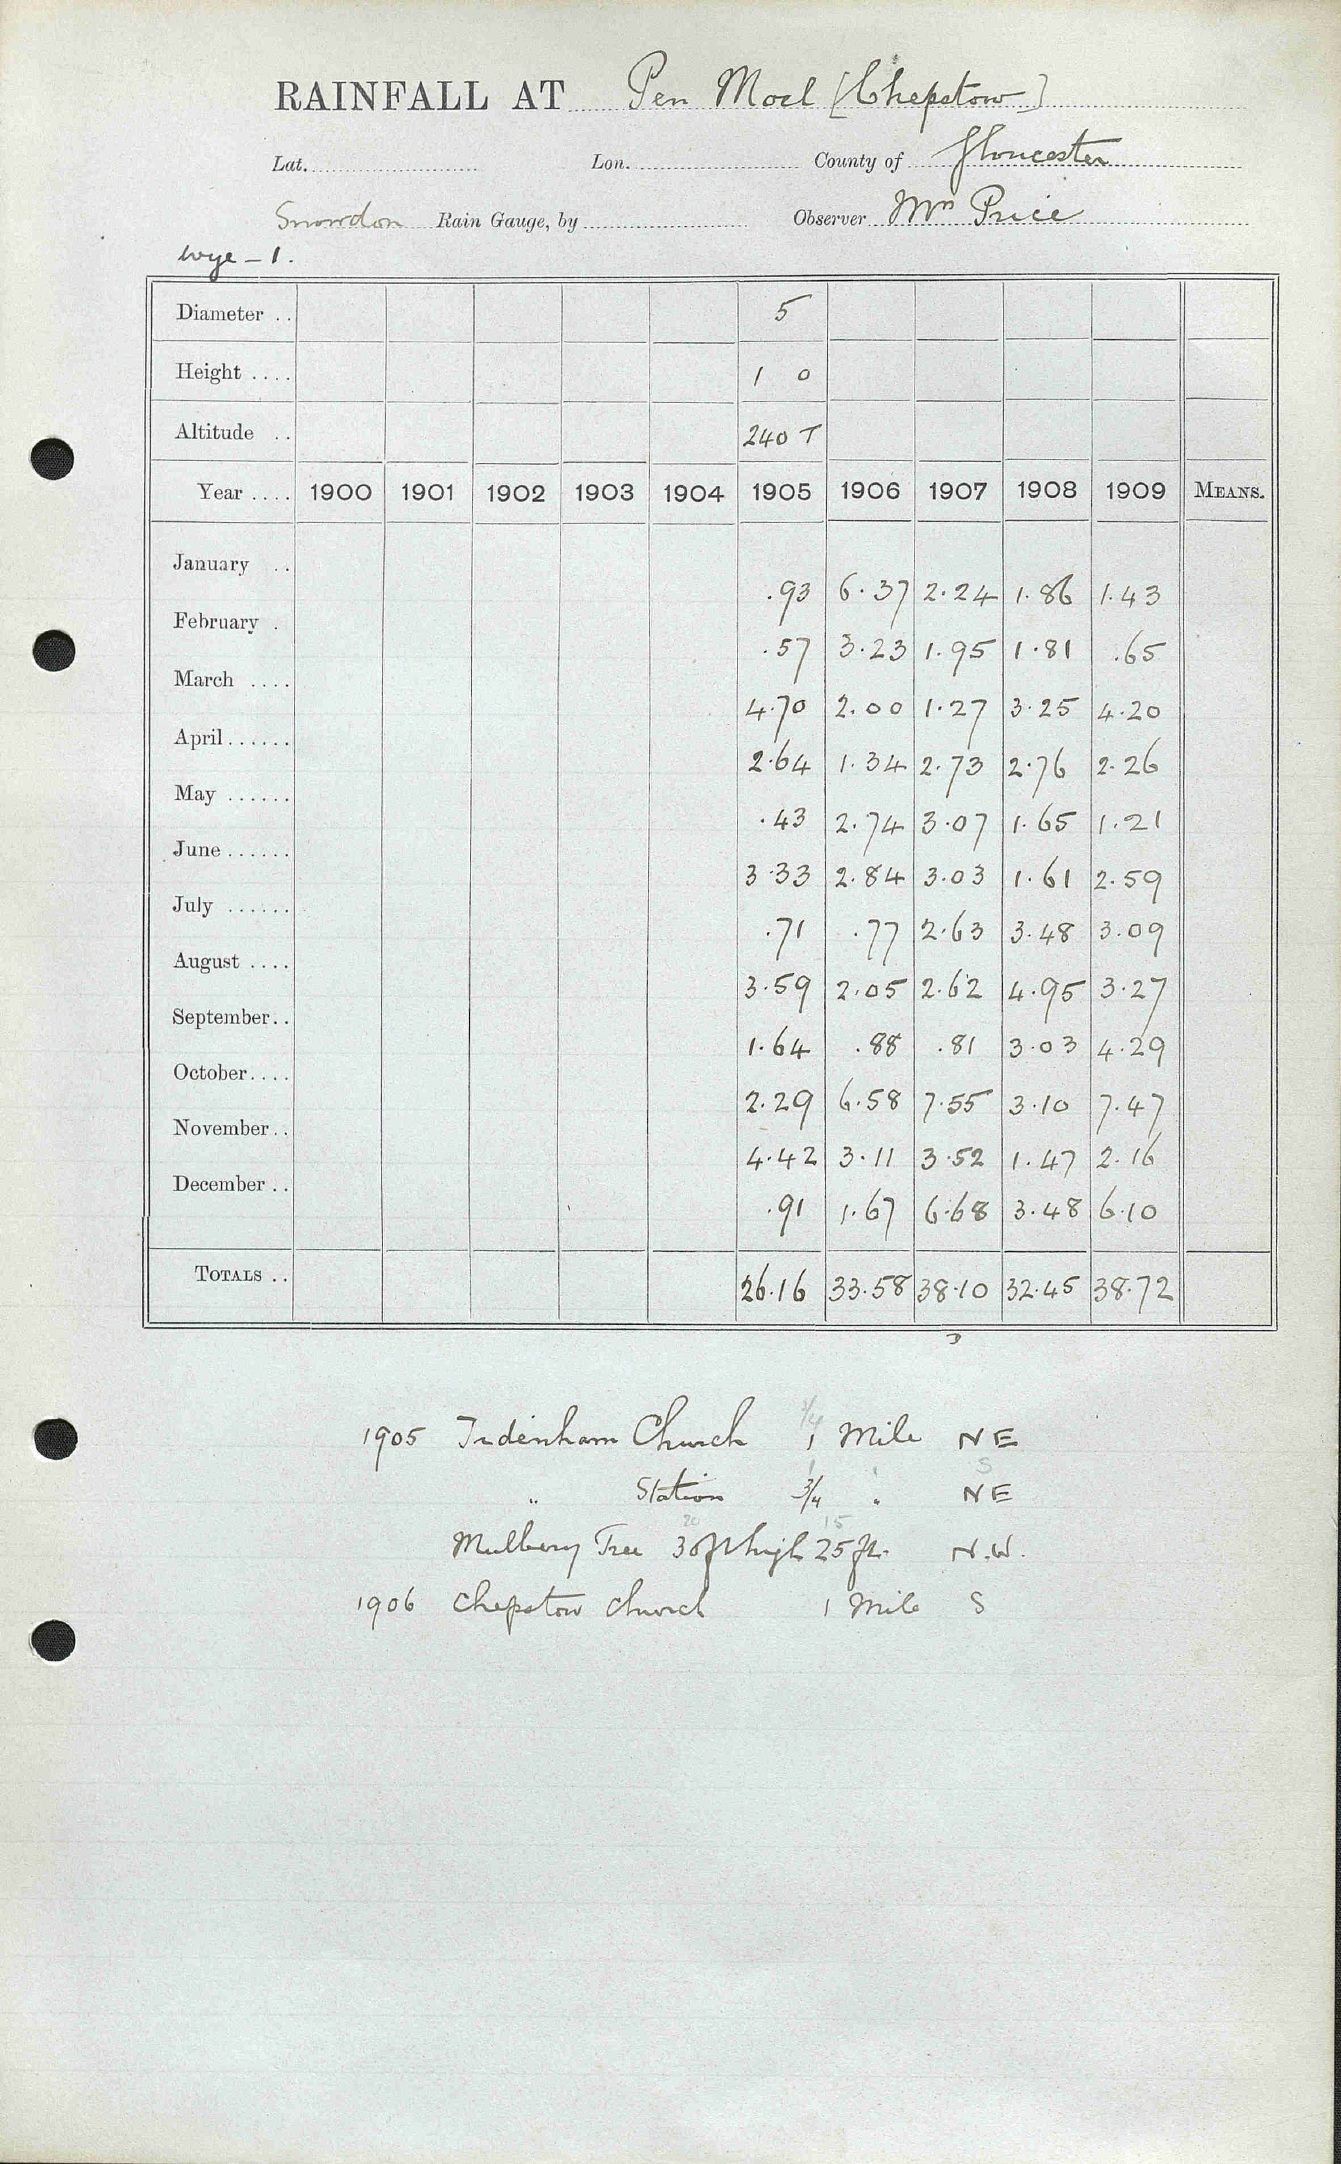 RAINFALL AT Pen Moel [Chepstow]
Lat. Lon. County of Gloucester
Snowdon Rain Gauge, by Observer Mrs Price
Wye - 1.
Diameter .. 5
Height .... 1 0
Altitude .. 240 T
Year .... 1900 1901 1902 1903 1904 1905 1906 1907 1908 1909 MEANS.
January .. .93 6.37 2.24 1.86 1.43
February . .57 3.23 1.95 1.81 .65
March .... 4.70 2.00 1.27 3.25 4.20
April...... 2.64 1.34 2.73 2.76 2.26
May ...... .43 2.74 3.07 1.65 1.21
June...... 3.33 2.84 3.03 1.61 2.59
July ...... .71 .77 2.63 3.48 3.09
August .... 3.59 2.05 2.62 4.95 3.27
September.. 1.64 .88 .81 3.03 4.29
October.... 2.29 6.58 7.55 3.10 7.47
November.. 4.42 3.11 3.52 1.47 2.16
December .. .91 1.67 6.68 3.48 6.10
TOTALS .. 26.16 33.58 38.10 32.45 38.72
3/4
1905 Tidenham Church 1 Mile NE
S
" Station 3/4 " NE
20 15
Mulberry Tree 30ft high 25 ft. N.W.
1906 Chepstow Church 1 Mile S